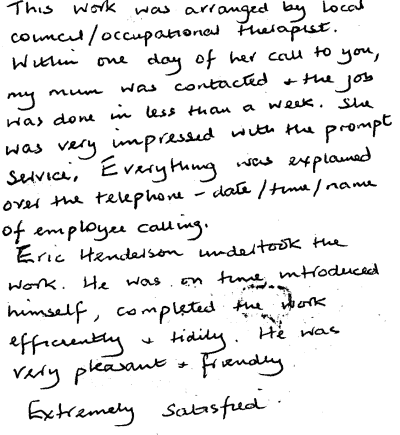 This work was arranged by local
council/occupational therapist.
Within one day of her call to you,
my mum was contacted + the job
was done in less than a week. She
was very impressed with the prompt
service. Everything was explained
over the telephone - date/time/name
of employee calling.
Eric Henderson undertook the
work. He was on time introduced
himself, completed the work
efficiently + tidily. He was
very pleasant + friendly
Extremely satisfied.